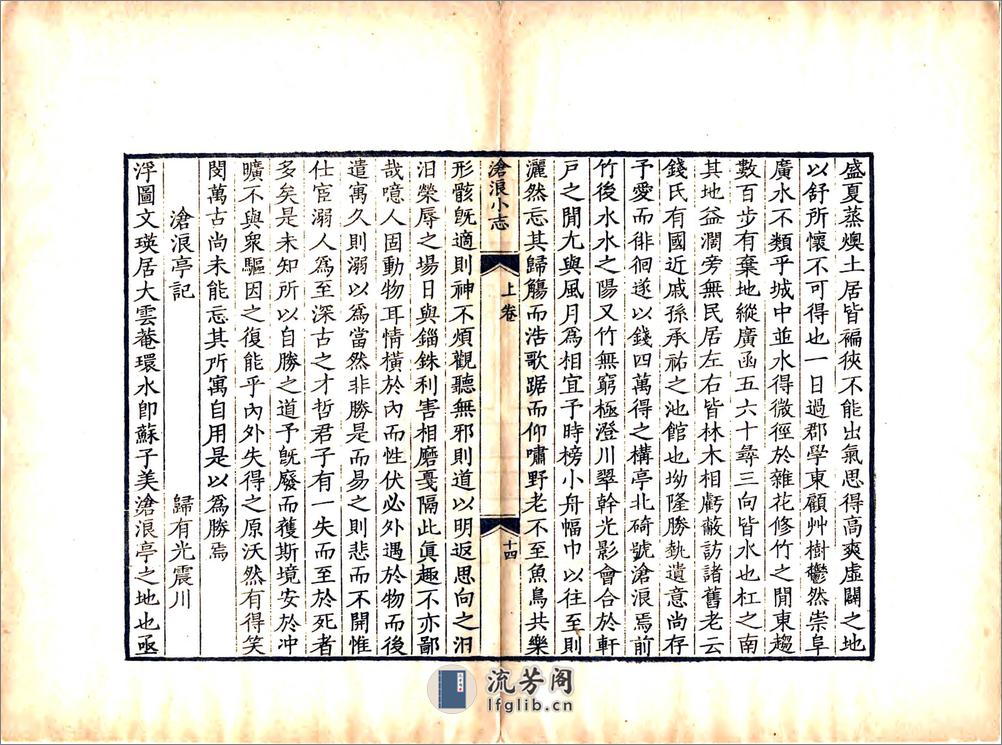 盛夏蒸燠土居皆褊狹不能出氣思得高爽虛闢之地
以舒所懷不可得也一日過郡學東顧艸樹鬱然崇阜
廣水不類乎城中並水得微徑於雜花修竹之閒東趨
數百步有棄地縱廣函五六十尋三向皆水也杠之南
其地益濶旁無民居左右皆林木相虧蔽訪諸舊老云
錢氏有國近戚孫承祐之池館也坳隆勝埶遺意尚存
予愛而徘徊遂以錢四萬得之構亭北碕號滄浪焉前
竹後水水之陽又竹無窮極澄川翠幹光影會合於軒
戶之閒尤與風月爲相宜予時榜小舟幅巾以往至則
灑然忘其歸觴而浩歌踞而仰嘯野老不至魚鳥共樂
滄浪小志
上卷
十四
形骸旣適則神不煩觀聽無邪則道以明返思向之汨
汨榮辱之場日與錙銖利害相磨戛隔此眞趣不亦鄙
哉噫人固動物耳情橫於內而性伏必外遇於物而後
遣寓久則溺以爲當然非勝是而易之則悲而不開惟
仕宦溺人爲至深古之才哲君子有一失而至於死者
多矣是未知所以自勝之道予旣廢而獲斯境安於冲
曠不與衆驅因之復能乎內外失得之原沃然有得笑
閔萬古尚未能忘其所寓自用是以爲勝焉
滄浪亭記 歸有光震川
浮圖文瑛居大雲菴環水卽蘇子美滄浪亭之地也亟
流芳阁
lfglib.cn